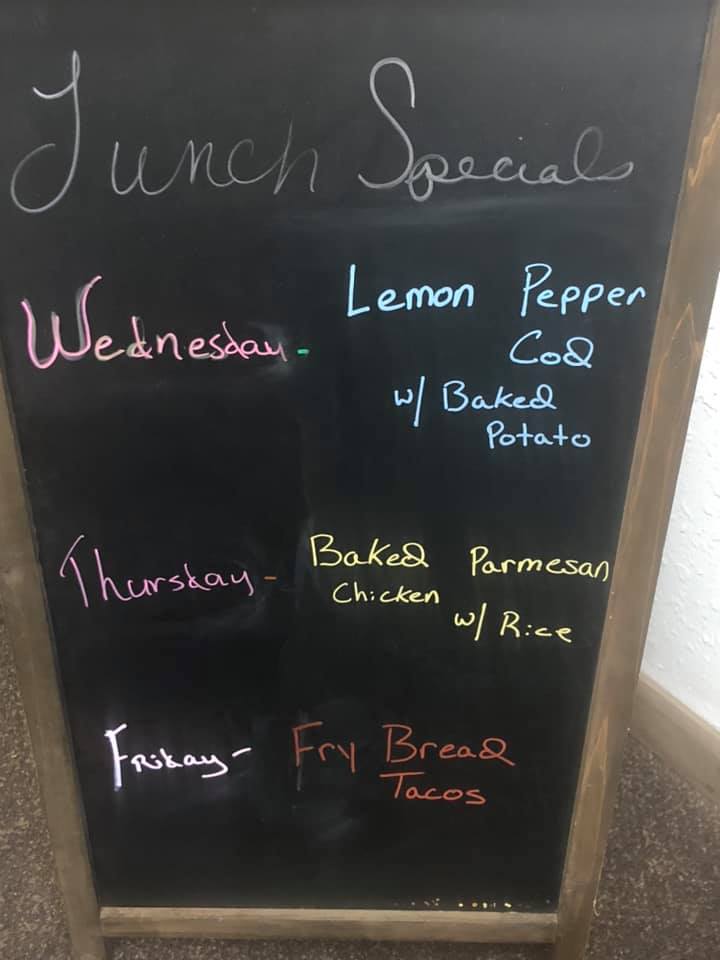 Lunch Specials
Wednesday - Lemon Pepper
Cod
w/ Baked
Potato
Thursday - Baked Parmesan
Chicken
w/ Rice
Friday - Fry Bread
Tacos